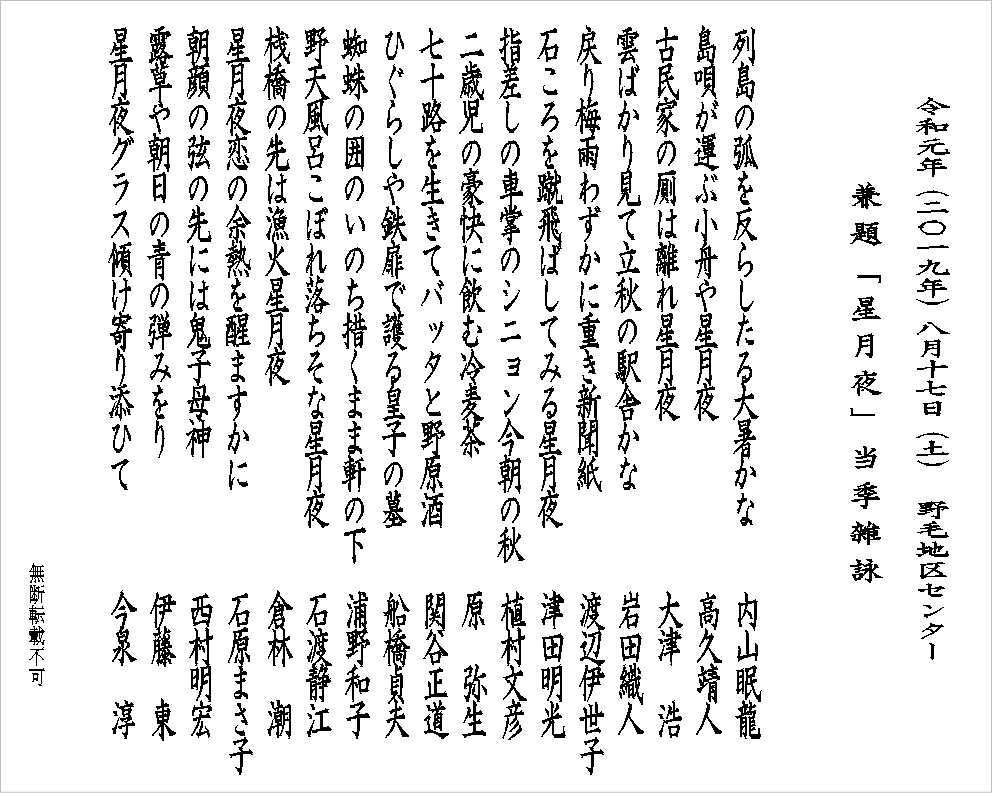 令和元年(二〇一九年)八月十七日(土) 野毛地区センター
兼題「星月夜」当季雑詠
列島の弧を反らしたる大暑かな 内山眠龍
島唄が運ぶ小舟や星月夜 高久靖人
古民家の厠は離れ星月夜 大津 浩
雲ばかり見て立秋の駅舎かな 岩田織人
戻り梅雨わずかに重き新聞紙 渡辺伊世子
石ころを蹴飛ばしてみる星月夜 津田明光
指差しの車掌のシニョン今朝の秋 植村文彦
二歳児の豪快に飲む冷麦茶 原 弥生
七十路を生きてバッタと野原酒 関谷正道
ひぐらしや鉄扉で護る皇子の墓 船橋貞夫
蜘蛛の囲のいのち措くまま軒の下 浦野和子
野天風呂こぼれ落ちそな星月夜 石渡静江
桟橋の先は漁火星月夜 倉林 潮
星月夜恋の余熱を醒ますかに 石原まさ子
朝顔の弦の先には鬼子母神 西村明宏
露草や朝日の青の弾みをり 伊藤 東
星月夜グラス傾け寄り添ひて 今泉 淳
無断転載不可